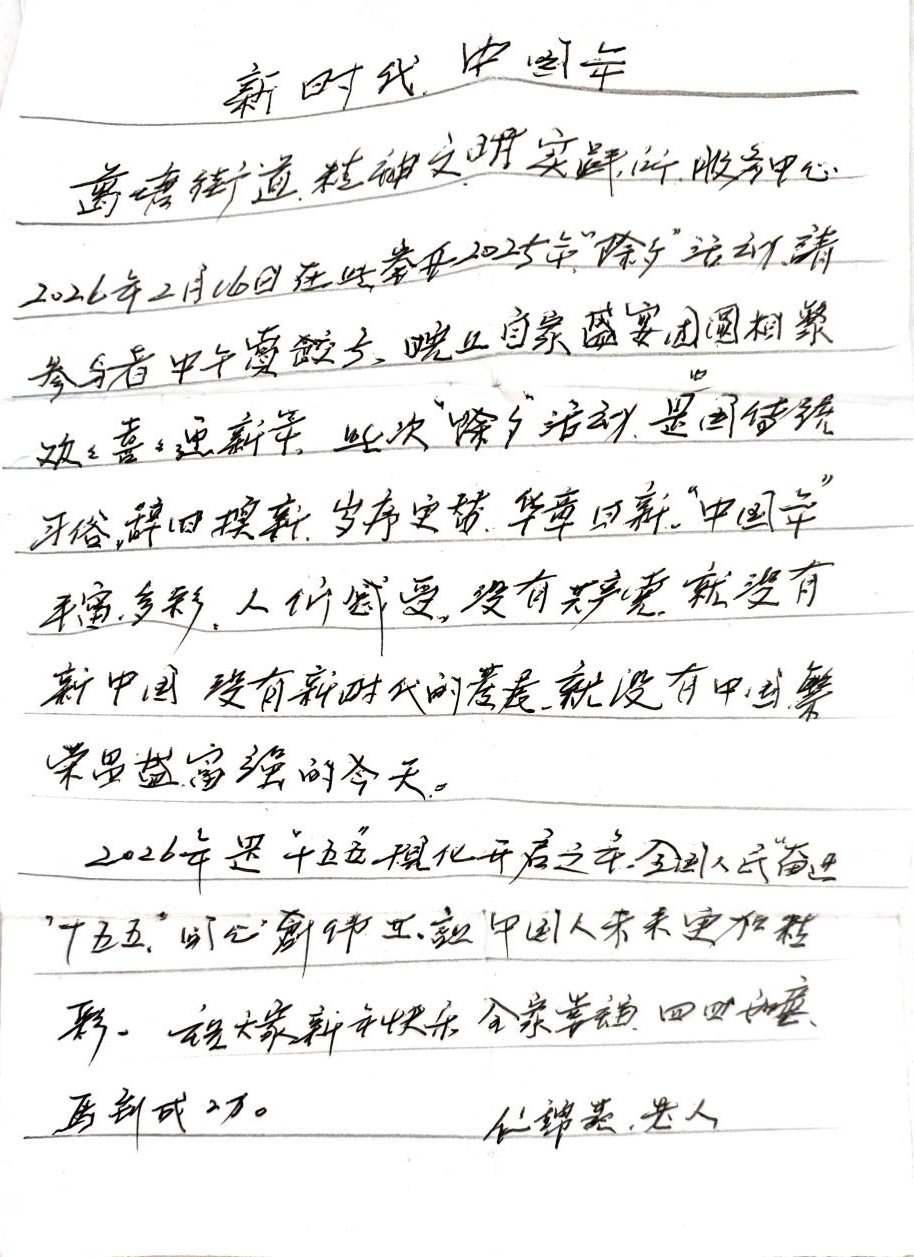 新时代.中国年
街道.精神文明实践所.服务中心
2026年2月16日在此举开2025年"除夕"活动.請
参与者中午饺子、晚上自家盛宴团圆相聚
欢々喜々迎新年.此次"除夕"活动.是中国传统
习俗,辞旧换新.岁序更替.华章日新。"中国年"
丰富.多彩.人们感受。没有共产党.就没有
新中国 没有新时代的发展.就没有中国繁
荣昌盛富强的今天。
2026年是"十五五"规化开启之年.全国人民"奋进
"十五五."同心創伟业.祝中国人未来更加精
彩。祝大家新年快乐 全家幸福 四四如意、
馬到成功。 錦.老人